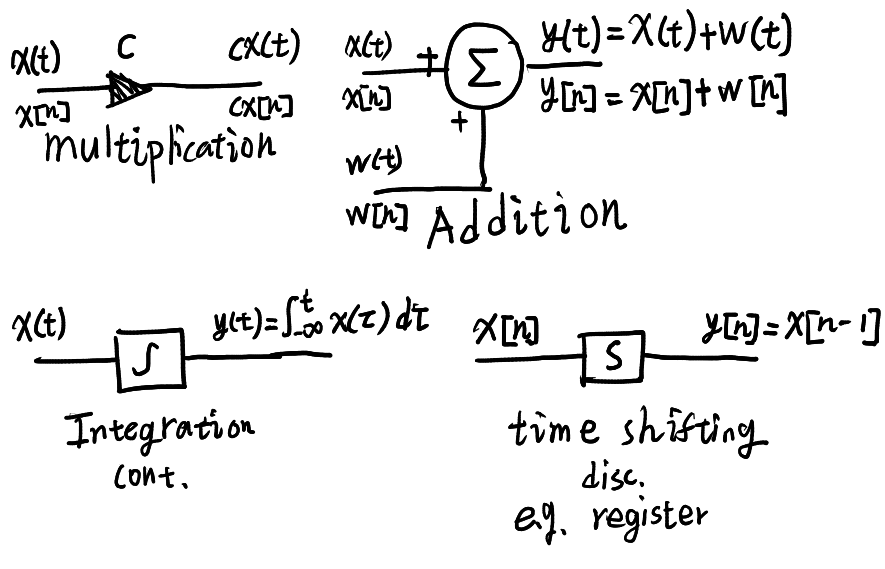 x(t) c cx(t)
x[n] cx[n]
multiplication
x(t) + Σ y(t)=x(t)+w(t)
x[n] y[n]=x[n]+w[n]
+
w(t)
w[n]
Addition
x(t) ∫ y(t)=∫_{-∞}^{t} x(τ)dτ
Integration
cont.
x[n] S y[n]=x[n-1]
time shifting
disc.
e.g. register